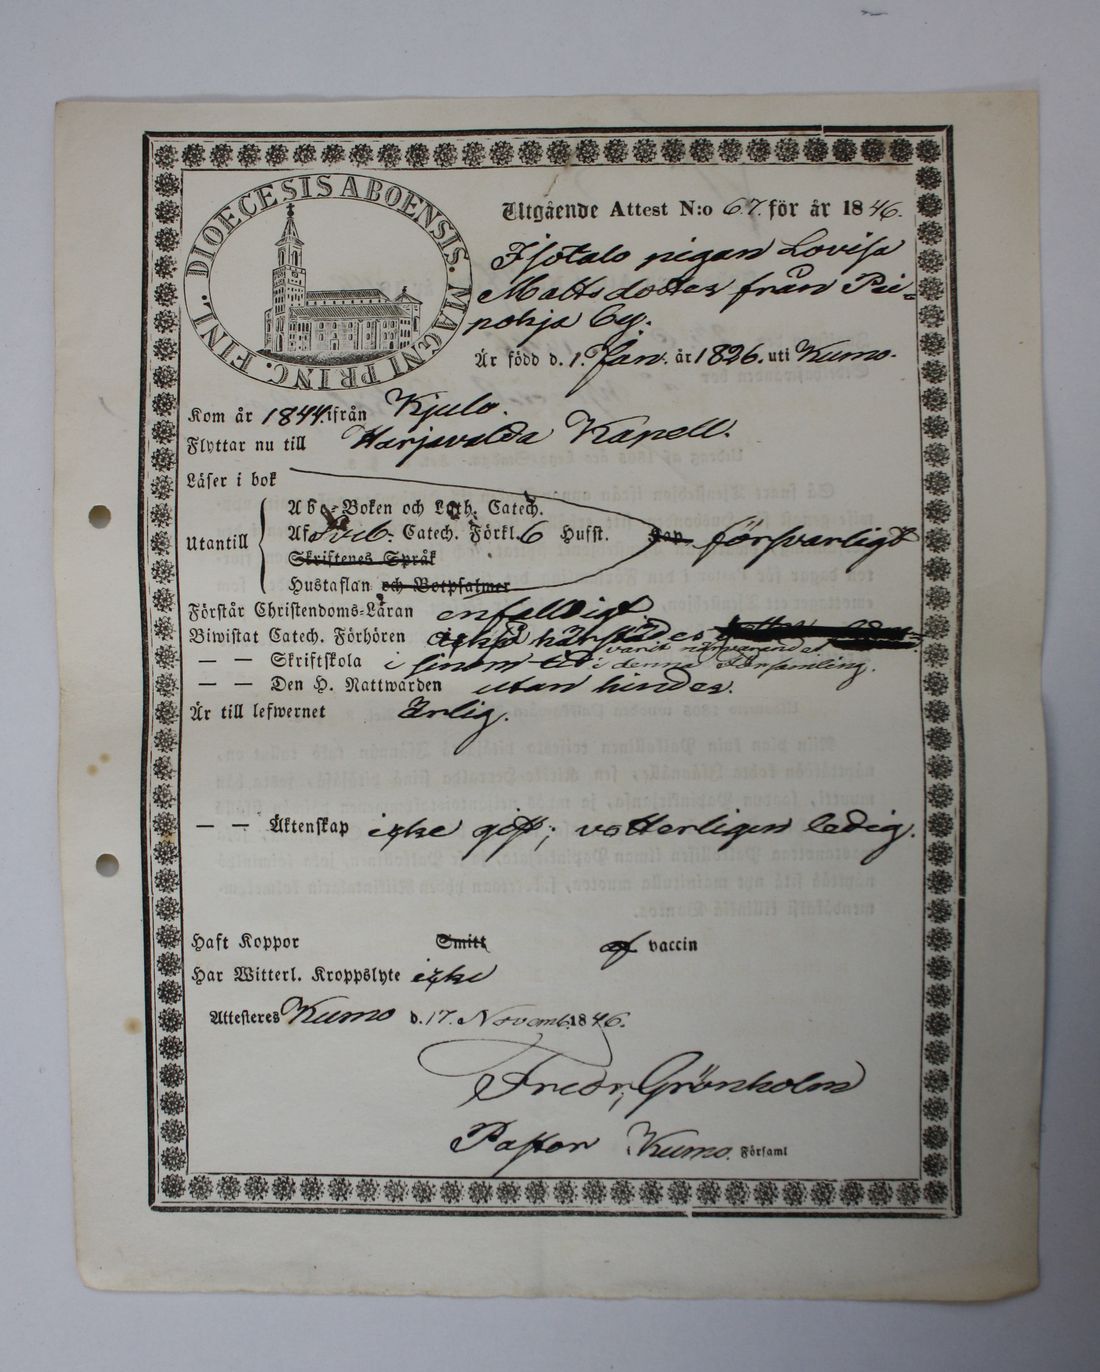 DIOECESIS ABOENSIS. MAGNI PRINC. FINL.
Utgående Attest N:o 67. för år 1846.
Isotalo pigan Lovisa
Mattsdotter från Pei-
pohja by.
Är född d. 1. Jan. år 1826. uti Kumo.
Kom år 1844. ifrån Kjulo.
Flyttar nu till Harjavalda Kapell.
Läser i bok
Abc-Boken och Luth. Catech.
Utantill
Af Sveb. Catech. Förkl. 6 Hufst. försvarligt
Skriftenes Språk
Hustaflan och Botpsalmer
Förstår Christendoms-Läran enfalldigt
Biwistat Catech. Förhören härstädes
varit närvarande
— — Skriftskola i sinom tid i denna Församling.
— — Den H. Nattwarden utan hinder.
Är till lefwernet ärlig.
— — Äktenskap icke gift; vetterligen ledig.
Haft Koppor Smitt af vaccin
Har Witterl. Kroppslyte icke
Attesteres Kumo d. 17. Novemb. 1846.
Fredr. Grönholm
Pastor Kumo. Församl